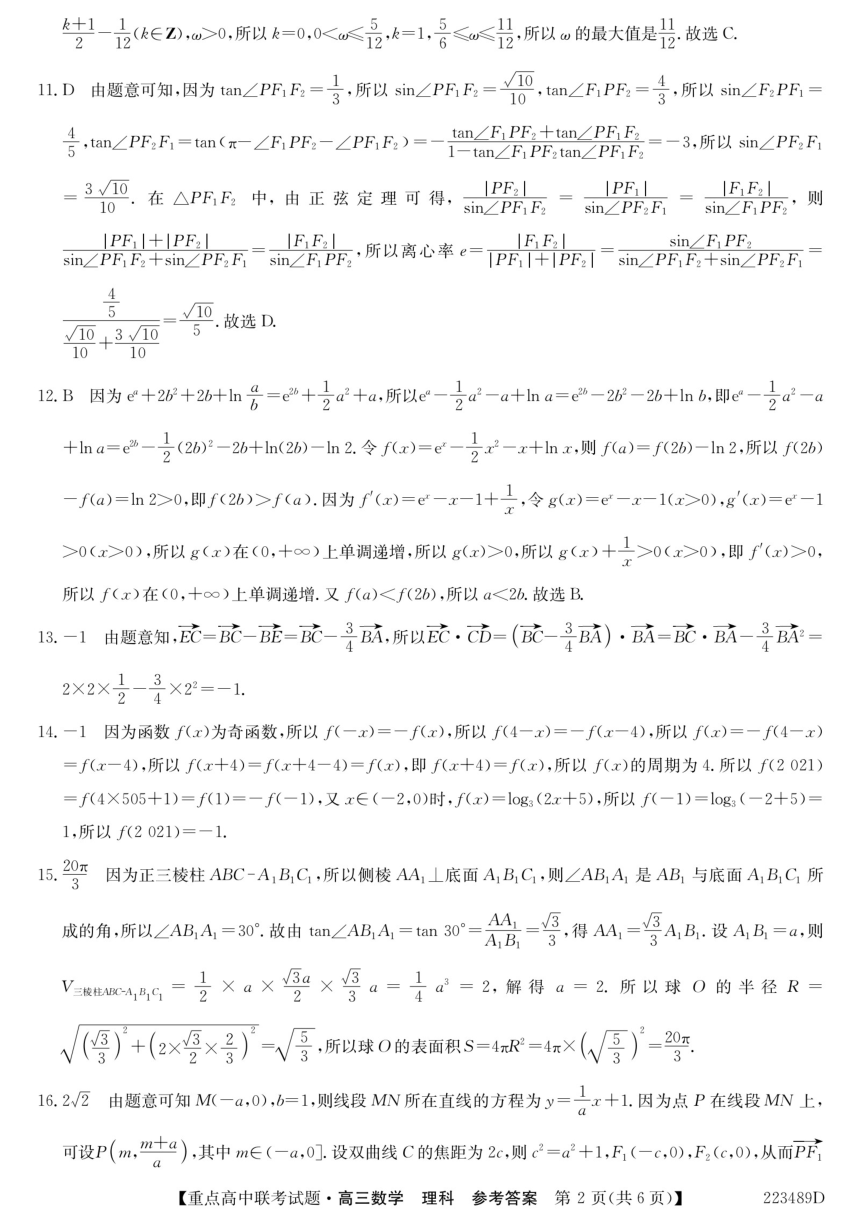 $\frac{k+1}{2}-\frac{1}{12}(k\in\mathbf{Z})$,ω>0,所以 k=0,$0<ω\leqslant\frac{5}{12}$,k=1,$\frac{5}{6}\leqslantω\leqslant\frac{11}{12}$,所以 ω 的最大值是$\frac{11}{12}$.故选 C.
11. D 由题意可知,因为 tan∠PF₁F₂=$\frac{1}{3}$,所以 sin∠PF₁F₂=$\frac{\sqrt{10}}{10}$,tan∠F₁PF₂=$\frac{4}{3}$,所以 sin∠F₂PF₁=
$\frac{4}{5}$,tan∠PF₂F₁=tan(π-∠F₁PF₂-∠PF₁F₂)=-$\frac{\tan∠F_1PF_2+\tan∠PF_1F_2}{1-\tan∠F_1PF_2\tan∠PF_1F_2}$=-3,所以 sin∠PF₂F₁
=$\frac{3\sqrt{10}}{10}$. 在 △PF₁F₂ 中, 由 正 弦 定 理 可 得, $\frac{|PF_2|}{\sin∠PF_1F_2}$ = $\frac{|PF_1|}{\sin∠PF_2F_1}$ = $\frac{|F_1F_2|}{\sin∠F_1PF_2}$, 则
$\frac{|PF_1|+|PF_2|}{\sin∠PF_1F_2+\sin∠PF_2F_1}$=$\frac{|F_1F_2|}{\sin∠F_1PF_2}$,所以离心率 e=$\frac{|F_1F_2|}{|PF_1|+|PF_2|}$=$\frac{\sin∠F_1PF_2}{\sin∠PF_1F_2+\sin∠PF_2F_1}$=
$\frac{\frac{4}{5}}{\frac{\sqrt{10}}{10}+\frac{3\sqrt{10}}{10}}$=$\frac{\sqrt{10}}{5}$.故选 D.
12. B 因为 $e^a+2b^2+2b+\ln\frac{a}{b}=e^{2b}+\frac{1}{2}a^2+a$,所以$e^a-\frac{1}{2}a^2-a+\ln a=e^{2b}-2b^2-2b+\ln b$,即$e^a-\frac{1}{2}a^2-a$
$+\ln a=e^{2b}-\frac{1}{2}(2b)^2-2b+\ln(2b)-\ln 2$. 令 $f(x)=e^x-\frac{1}{2}x^2-x+\ln x$,则 f(a)=f(2b)-ln 2,所以 f(2b)
-f(a)=ln 2>0,即 f(2b)>f(a). 因为 $f'(x)=e^x-x-1+\frac{1}{x}$,令 $g(x)=e^x-x-1(x>0)$,$g'(x)=e^x-1$
>0(x>0),所以 g(x)在(0,+∞)上单调递增,所以 g(x)>0,所以 $g(x)+\frac{1}{x}>0(x>0)$,即 f′(x)>0,
所以 f(x)在(0,+∞)上单调递增. 又 f(a)<f(2b),所以 a<2b. 故选 B.
13. -1 由题意知,$\overrightarrow{EC}=\overrightarrow{BC}-\overrightarrow{BE}=\overrightarrow{BC}-\frac{3}{4}\overrightarrow{BA}$,所以$\overrightarrow{EC}\cdot\overrightarrow{CD}=\left(\overrightarrow{BC}-\frac{3}{4}\overrightarrow{BA}\right)\cdot\overrightarrow{BA}=\overrightarrow{BC}\cdot\overrightarrow{BA}-\frac{3}{4}\overrightarrow{BA}^2=$
$2×2×\frac{1}{2}-\frac{3}{4}×2^2=-1$.
14. -1 因为函数 f(x)为奇函数,所以 f(-x)=-f(x),所以 f(4-x)=-f(x-4),所以 f(x)=-f(4-x)
=f(x-4),所以 f(x+4)=f(x+4-4)=f(x),即 f(x+4)=f(x),所以 f(x)的周期为 4. 所以 f(2 021)
=f(4×505+1)=f(1)=-f(-1),又 x∈(-2,0)时,f(x)=log₃(2x+5),所以 f(-1)=log₃(-2+5)=
1,所以 f(2 021)=-1.
15. $\frac{20π}{3}$ 因为正三棱柱 ABC-A₁B₁C₁,所以侧棱 AA₁⊥底面 A₁B₁C₁,则∠AB₁A₁ 是 AB₁ 与底面 A₁B₁C₁ 所
成的角,所以∠AB₁A₁=30°. 故由 tan∠AB₁A₁=tan 30°=$\frac{AA_1}{A_1B_1}=\frac{\sqrt{3}}{3}$,得 AA₁=$\frac{\sqrt{3}}{3}$A₁B₁. 设 A₁B₁=a,则
$V_{三棱柱ABC-A_1B_1C_1}$ = $\frac{1}{2}$ × a × $\frac{\sqrt{3}a}{2}$ × $\frac{\sqrt{3}}{3}$ a = $\frac{1}{4}$ a³ = 2, 解 得 a = 2. 所 以 球 O 的 半 径 R =
$\sqrt{\left(\frac{\sqrt{3}}{3}\right)^2+\left(2×\frac{\sqrt{3}}{2}×\frac{2}{3}\right)^2}=\sqrt{\frac{5}{3}}$,所以球 O 的表面积 $S=4πR^2=4π×\left(\sqrt{\frac{5}{3}}\right)^2=\frac{20π}{3}$.
16. $2\sqrt{2}$ 由题意可知 M(-a,0),b=1,则线段 MN 所在直线的方程为 $y=\frac{1}{a}x+1$. 因为点 P 在线段 MN 上,
可设$P\left(m,\frac{m+a}{a}\right)$,其中 m∈(-a,0]. 设双曲线 C 的焦距为 2c,则 c²=a²+1,F₁(-c,0),F₂(c,0),从而$\overrightarrow{PF_1}$
【重点高中联考试题·高三数学 理科 参考答案 第 2 页(共 6 页)】 223489D